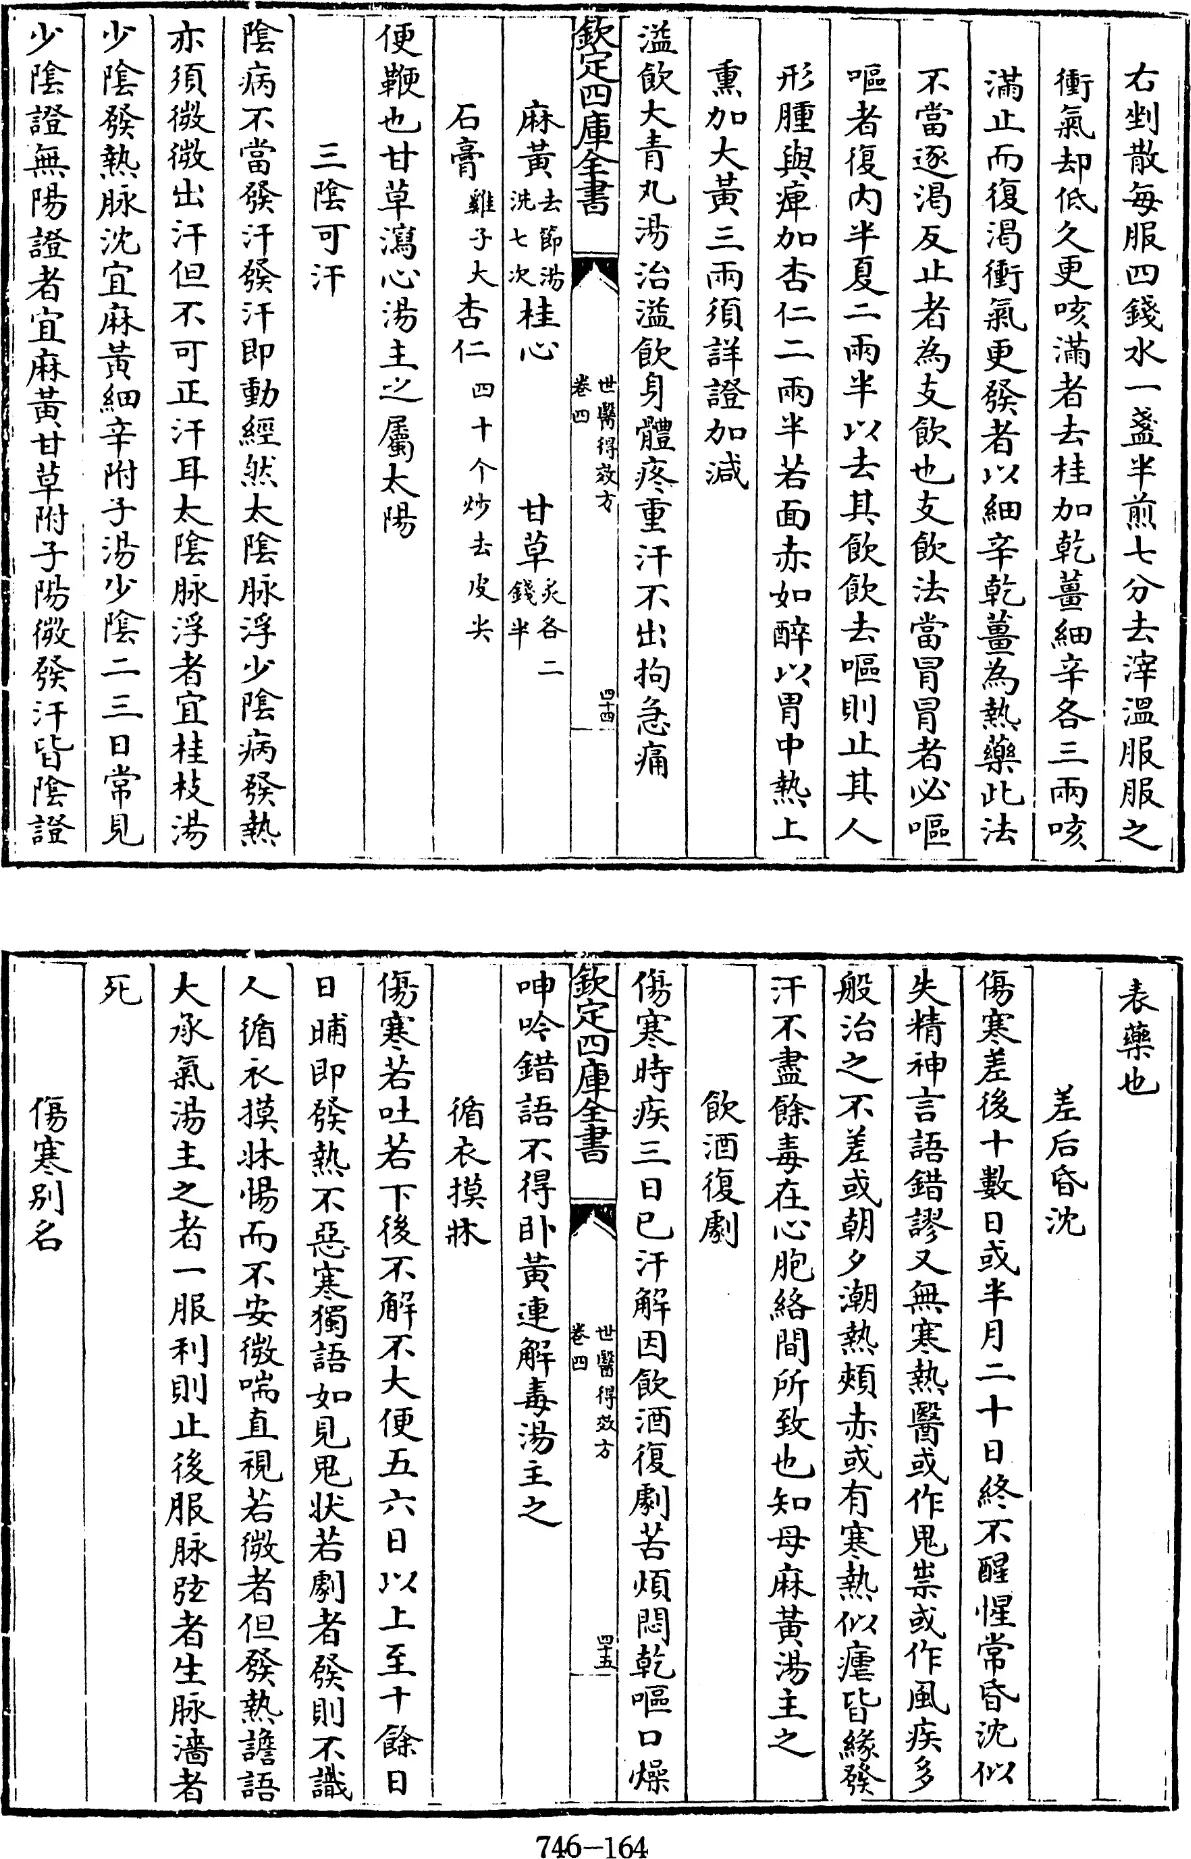 右剉散每服四錢水一盞半煎七分去滓溫服服之
衝氣却低久更咳滿者去桂加乾薑細辛各三兩咳
滿止而復渴衝氣更發者以細辛乾薑為熱藥此法
不當逐渴反止者為支飲也支飲法當冒冒者必嘔
嘔者復内半夏二兩半以去其飲飲去嘔則止其人
形腫與痺加杏仁二兩半若面赤如醉以胃中熱上
熏加大黃三兩須詳證加減
溢飲大青丸湯治溢飲身體疼重汗不出拘急痛
欽定四庫全書
世醫得效方
卷四
四十四
麻黃去節湯洗七次桂心 甘草炙各二錢半
石膏雞子大杏仁四十个炒去皮尖
便鞕也甘草瀉心湯主之屬太陽
三陰可汗
陰病不當發汗發汗即動經然太陰脉浮少陰病發熱
亦須微微出汗但不可正汗耳太陰脉浮者宜桂枝湯
少陰發熱脉沈宜麻黃細辛附子湯少陰二三日常見
少陰證無陽證者宜麻黃甘草附子陽微發汗皆陰證
表藥也
差后昏沈
傷寒差後十數日或半月二十日終不醒惺常昏沈似
失精神言語錯謬又無寒熱醫或作鬼祟或作風疾多
般治之不差或朝夕潮熱頰赤或有寒熱似瘧皆緣發
汗不盡餘毒在心胞絡間所致也知母麻黃湯主之
飲酒復劇
傷寒時疾三日已汗解因飲酒復劇苦煩悶乾嘔口燥
欽定四庫全書
世醫得效方
卷四
四十五
呻吟錯語不得卧黃連解毒湯主之
循衣摸牀
傷寒若吐若下後不解不大便五六日以上至十餘日
日晡即發熱不惡寒獨語如見鬼狀若劇者發則不識
人循衣摸牀惕而不安微喘直視若微者但發熱譫語
大承氣湯主之者一服利則止後服脉弦者生脉濇者
死
傷寒别名
746-164